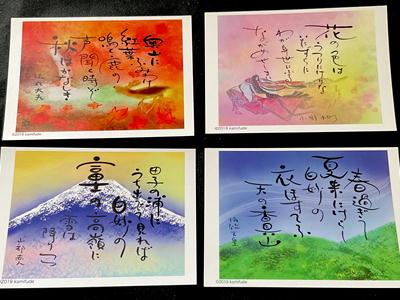 奥山に
紅葉ふみわけ
鳴く鹿の
声聞く時ぞ
秋はかなしき
猿丸大夫
©2019 kamifude
花の色は
うつりにけりな
いたずらに
わが身世にふる
ながめせしまに
小野小町
©2019 kamifude
田子の浦に
うち出でて見れば
白妙の
富士の高嶺に
雪は
降りつつ
山部赤人
©2019 kamifude
春過ぎて
夏来にけらし
白妙の
衣ほすてふ
天の香具山
持統天皇
©2019 kamifude